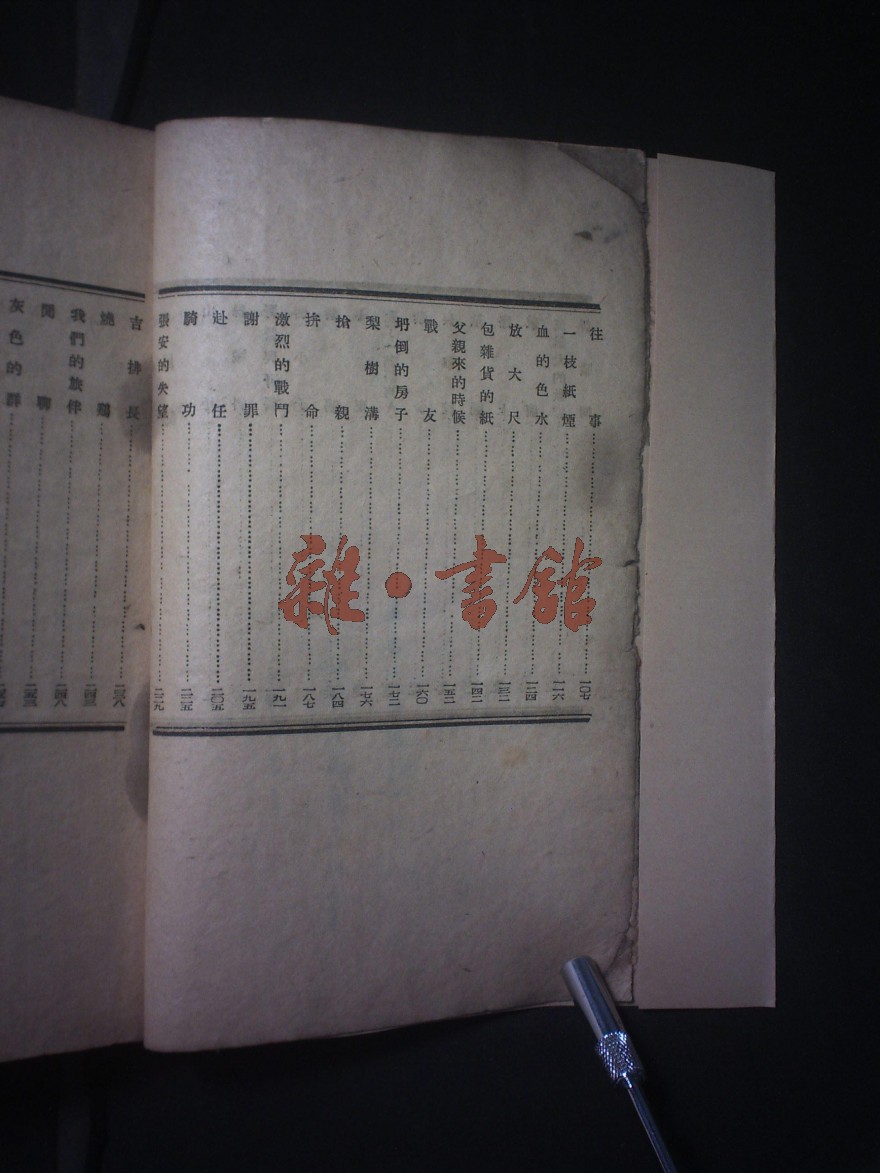 往事……一〇七
一枝紙煙……一一六
血的色水……一二四
放大尺……一三二
包雜貨的紙……一四二
父親來的時候……一五二
戰友……一六〇
坍倒的房子……一七二
梨樹溝……一七六
搶親……一八四
拚命……一八七
激烈的戰鬥……一九一
謝罪……一九五
赴任……二〇五
騎功……二二五
張安的失望……二二九
吉排長……二三八
燒鷄……二四三
我們的旅伴……二四八
閒聊
灰色的群
雜·書館